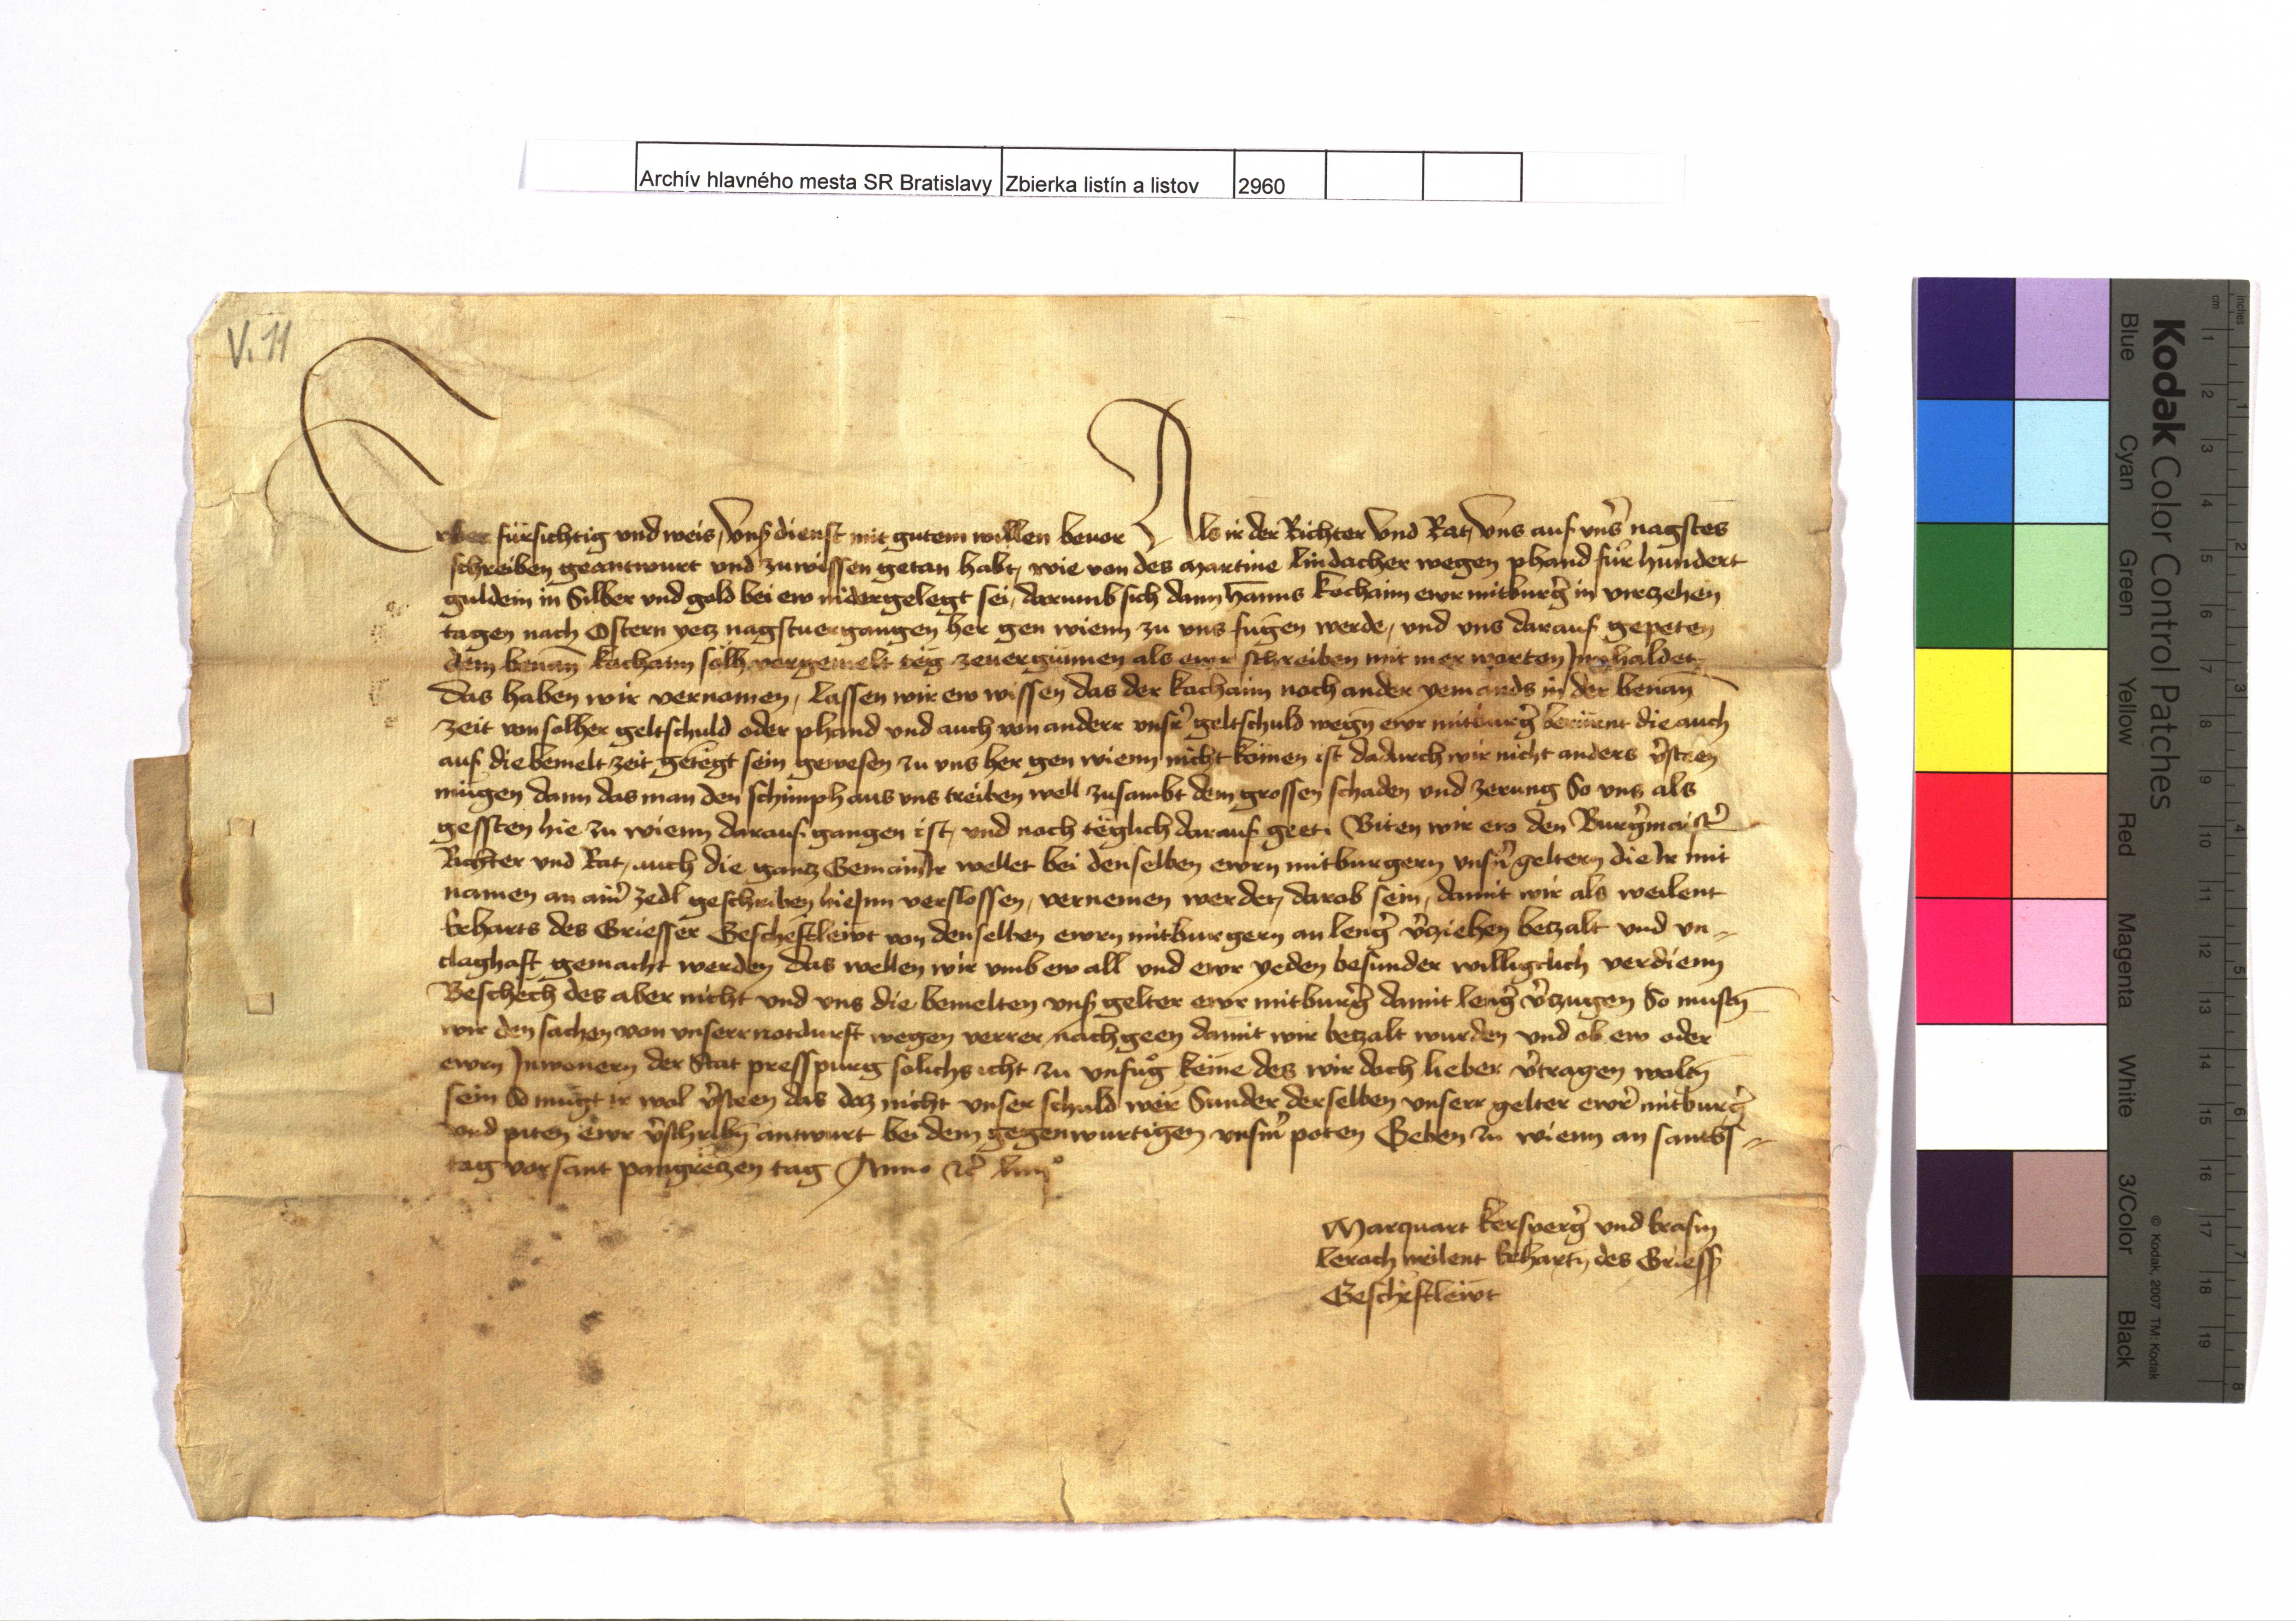 Archív hlavného mesta SR Bratislavy Zbierka listín a listov 2960
V. 11
Erber fürsichtig vnd weis, Vnß dienst mit gutem willen beuor Als ir der Richter Vnd Rat, Vns auf vnß nagstes
schreiben geantwurt vnd zuwissen getan habt, wie von des Martine Lindacher wegen phand für hundert
guldein in Silber vnd gold bei ew nidergelegt sei, darumb sich dann hanns Kochaim ewr mitburg in virczehen
tagen nach Ostern yecz nagstuergangen her gen wienn zu vns fugen werde, vnd vns darauf gepeten
dem benan Kochaim solh vorgemelt teg zeuergünnen als ewr schreiben mit mer worten Innhaldet
Das haben wir vernomen, lassen wir ew wissen das der Kochaim noch ander yemands in der benan
zeit von solher geltschuld oder phand vnd auch von anderr vnsr geltschuld wegn ewr mitburg die auch
auf die bemelt zeit getegt sein gewesen zu vns her gen wienn nicht komen ist dadurch wir nicht anders vsteen
mügen dann das man den schimph aus vns treiben well zusambt dem grossen schaden vnd zerung So vns als
gessten hie zu wienn darauf gangen ist, vnd noch teglich darauf geet. Biten wir ew den Burgmaister
Richter vnd Rat, auch die gancz Gemain Ir wellet bei denselben ewrn mitburgern vnsn geltern die Ir mit
namen an ainr zedl geschriben hieInn verslossen, vernemen werdet, darob sein, damit wir als weilent
Erharts des Griesser Gescheftlewt von denselben ewrn mitburgern an leng vcziehen beczalt vnd vn-
claghaft gemacht werden das wellen wir vmb ew all vnd ewr yeden besunder williclich verdienn
Beschech des aber nicht vnd vns die bemelten vnß gelter ewr mitburg damit leng vczugen So musn
wir den sachen von vnserr notdurft wegen verrer nachgeen damit wir beczalt wurden vnd ob ew oder
ewrn Inwonern der Stat presspurg solichs icht zu vnfug keme des wir doch lieber vtragen woltn
sein So mugt ir wol vsteen das daz nicht vnser schuld wer Sunder derselben vnserr gelter ewr mitburg
vnd piten ewr vschribn antwurt bei dem gegenwurtigen vnsm poten Geben zu wienn an sambs-
tag vor sant pangreczen tag Anno etc liiii
Marquart Kersperg vnd Erasm
Leroch weilent Erhartn des Griess
Gescheftlewt
Kodak Color Control Patches
Blue Cyan Green Yellow Red Magenta White 3/Color Black
© Kodak, 2007 TM: Kodak
inches 1 2 3 4 5 6 7 8
cm 1 2 3 4 5 6 7 8 9 10 11 12 13 14 15 16 17 18 19